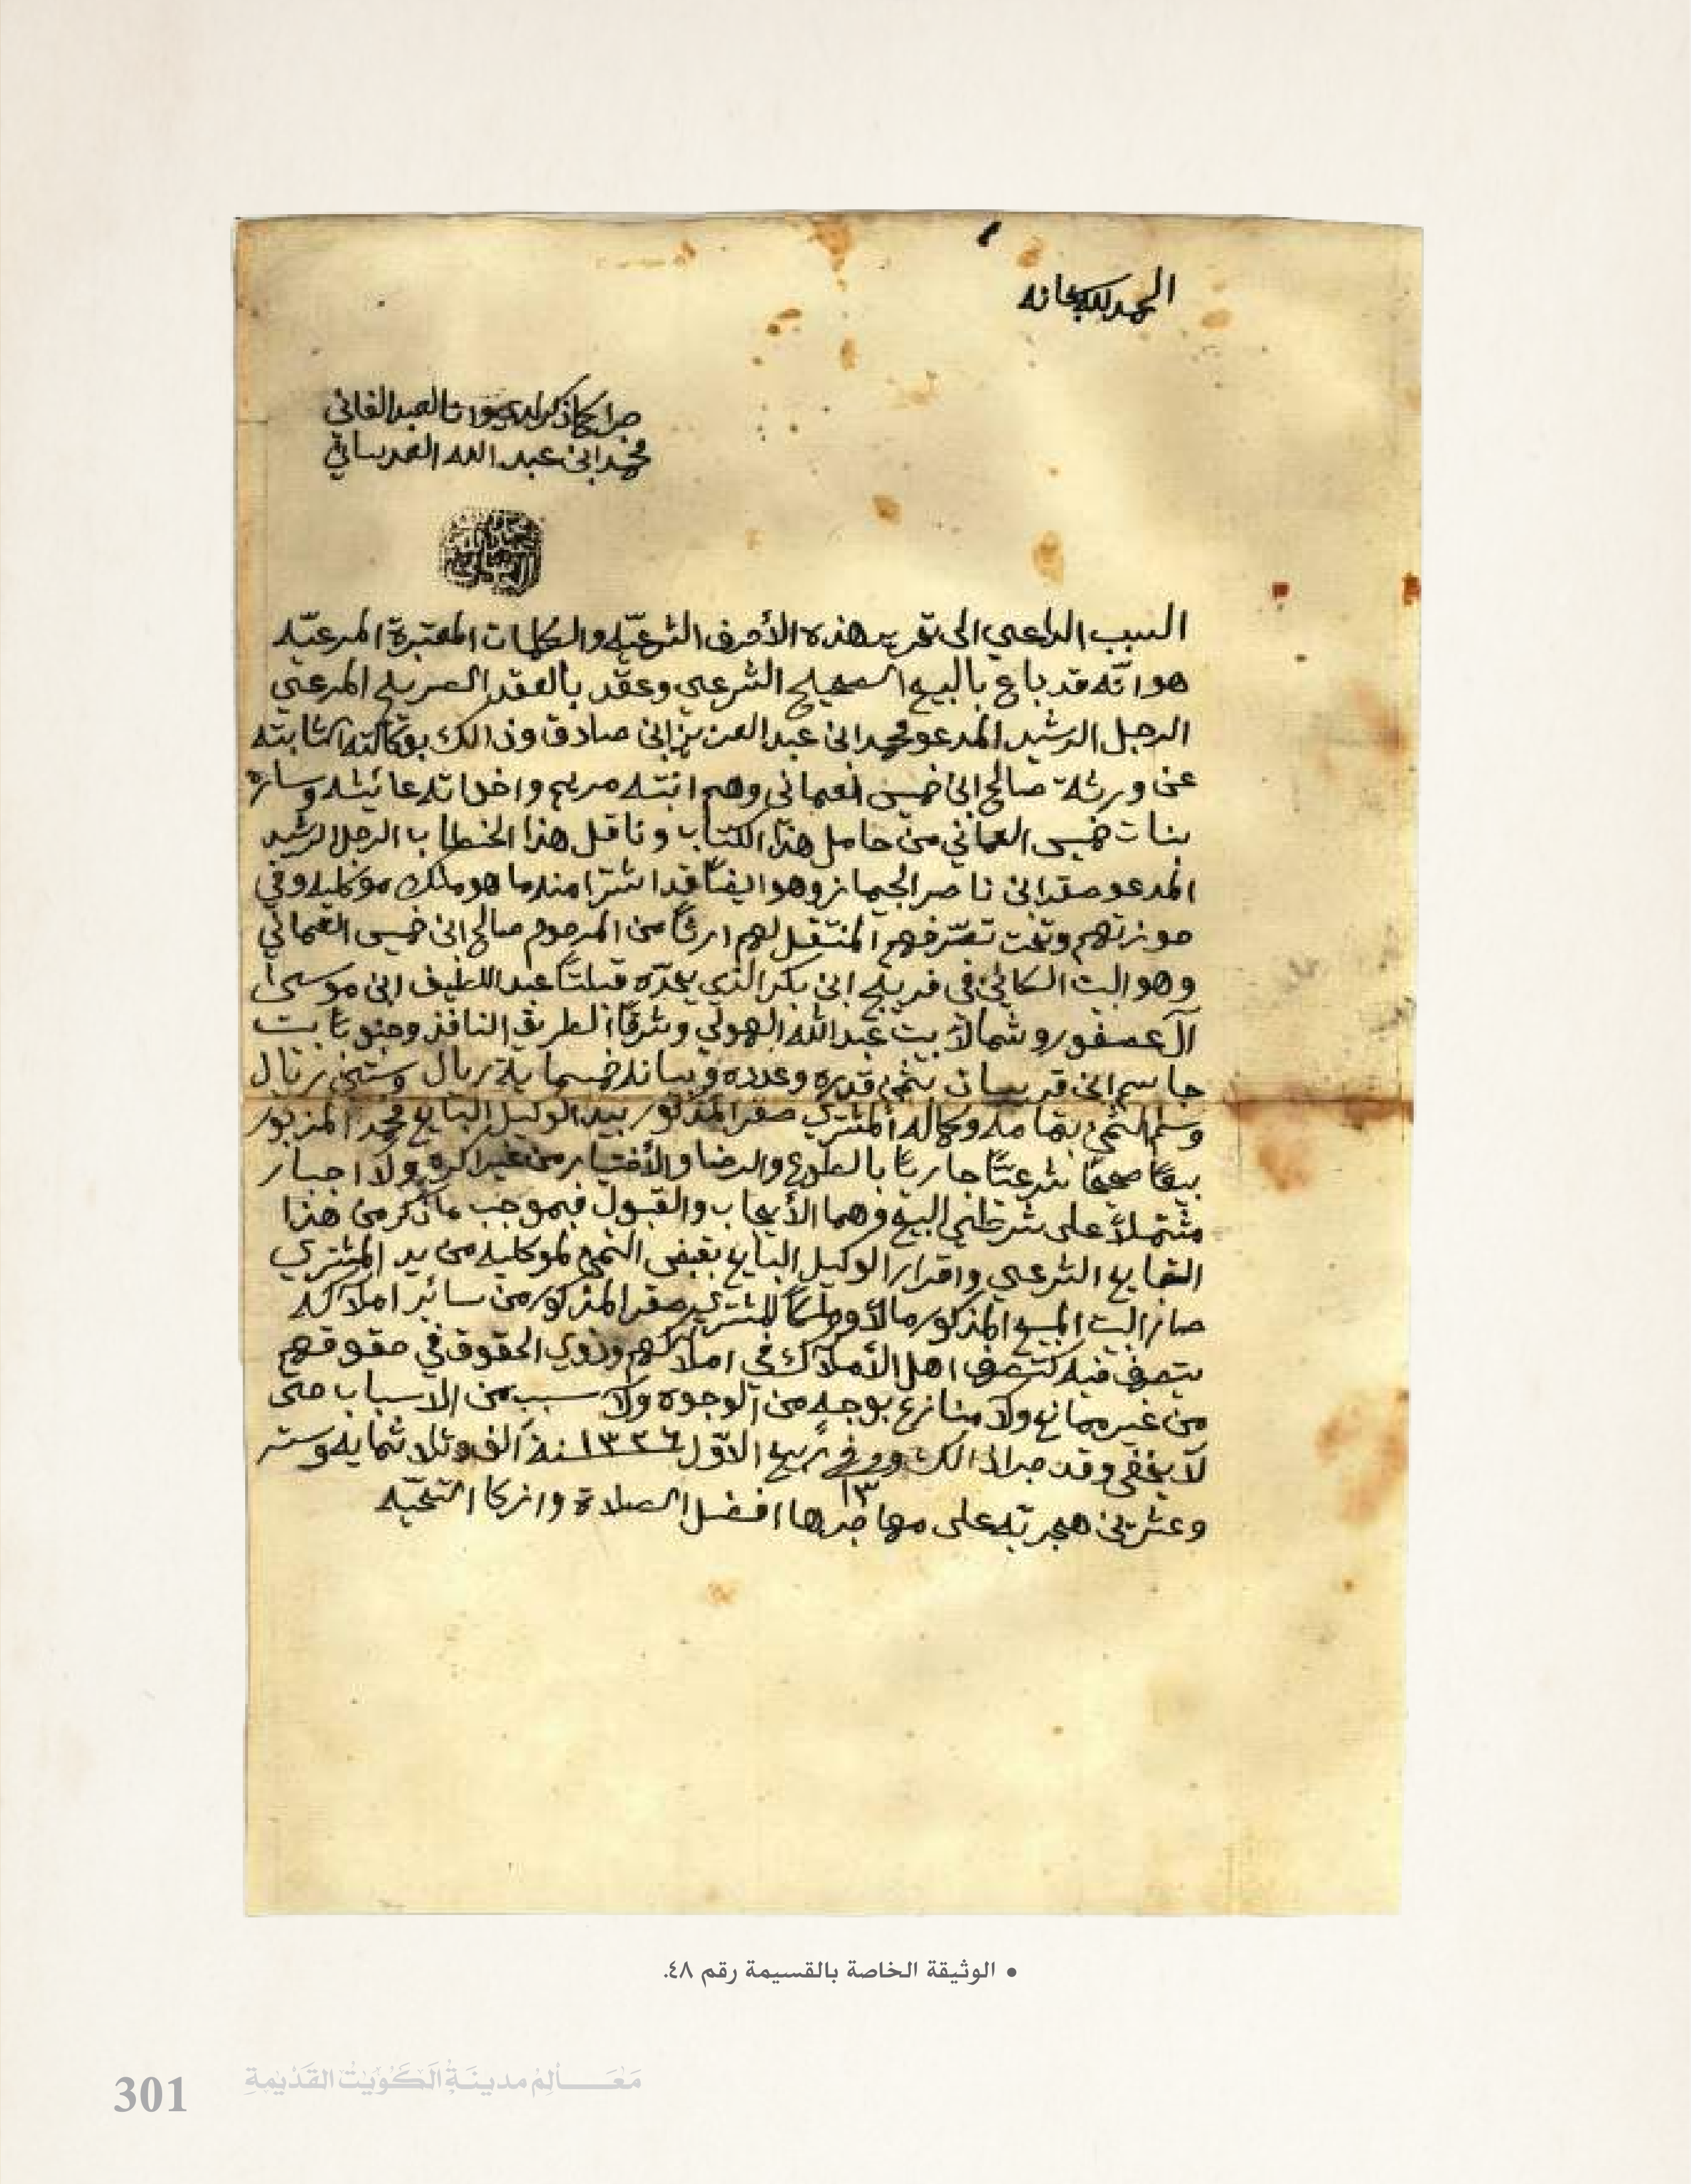 الحمد لله سبحانه
جرا كما ذكر لدي وانا العبد الفاني
محمد ابن عبد الله العدساني
السبب الداعي الى تحرير هذه الأحرف الشرعيّه والكلمات المعتبرة المرعيّه
هو انّه قد باع بالبيع الصحيح الشرعي وعقد بالعقد الصريح المرعي
الرجل الرشيد المدعو محمد ابن عبد العزيز ابن صادق وذالك بوكالته الثابته
عن ورثة صالح ابن خميس العماني وهم ابنته مريم واخواته عايشه وساره
بنات خميس العماني من حامل هذا الكتاب وناقل هذا الخطاب الرجل الرشيد
المدعو صقر ابن ناصر الجيماز وهو ايضًا قد اشترا منه ما هو ملك موكليه وفي
حوزتهم وتحت تصرّفهم المنتقل لهم ارثًا من المرحوم صالح ابن خميس العماني
وهو البيت الكائن في فريج ابن بكر الذي يحدّه قبلتًا عبد اللطيف ابن موسى
آل عصفور وشمالاً بيت عبد الله الهولي وشرقًا الطريق النافذ وجنوبًا بيت
جاسم ابن قريبان بثمن قدره وعدده وبيانه خمسماية ريال وستين ريال
وسلم الثمن بتمامه وكماله المشتري صقر المذكور بيد الوكيل البايع محمد المزبور
بيعًا صحيحًا شرعيًّا جاريًا بالطوع والرضا والأختيار من غير اكره ولا اجبار
مشتملاً على شرطي البيع وهما الأيجاب والقبول فبموجب ما ذكر من هذا
التبايع الشرعي واقرار الوكيل البايع بقبض الثمن لموكليه من يد المشتري
صار البيت المبيع المذكور مالاً وملكًا للمشتري صقر المذكور من سائر املاكه
يتصرف فيه كتصرف اهل الأملاك في املاكهم وذوي الحقوق في حقوقهم
من غير ممانع ولا منازع بوجه من الوجوه ولا سبب من الاسباب حتى
لا يخفى وقد جرا ذالك وفي ١٣ ربيع الاوّل ١٣٢٦ سنة الف وثلاثمايه وسته
وعشرين هجرته على مهاجرها افضل الصلاة وازكا التحيّه
• الوثيقة الخاصة بالقسيمة رقم ٤٨.
301 مَعَالِم مدينَة الكُوَيْت القَدِيمة